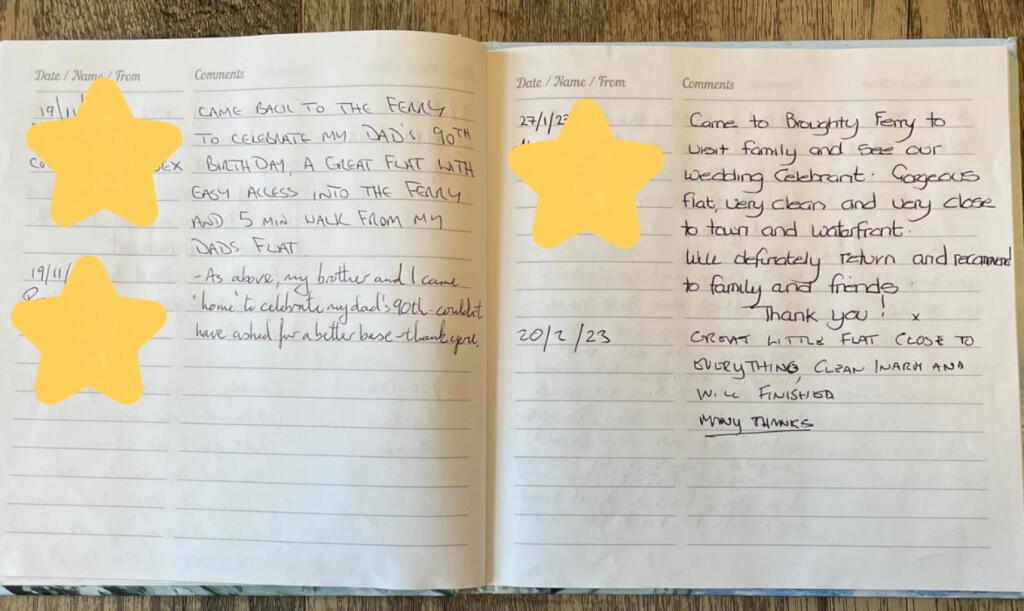 Date / Name / From
Comments
19/11/
CAME BACK TO THE FERRY
TO CELEBRATE MY DAD'S 90TH
EX BIRTHDAY, A GREAT FLAT WITH
EASY ACCESS INTO THE FERRY
AND 5 MIN WALK FROM MY
DADS FLAT.
19/11/
- As above, my brother and I came
'home' to celebrate my dad's 90th - couldn't
have asked for a better base - thank you.
Date / Name / From
Comments
27/1/23
Came to Broughty Ferry to
visit family and see our
wedding Celebrant. Gorgeous
flat, very clean and very close
to town and waterfront.
Will definately return and recommend
to family and friends.
Thank you! x
20/2/23
GREAT LITTLE FLAT CLOSE TO
EVERYTHING, CLEAN WARM AND
WILL FINISHED
MANY THANKS